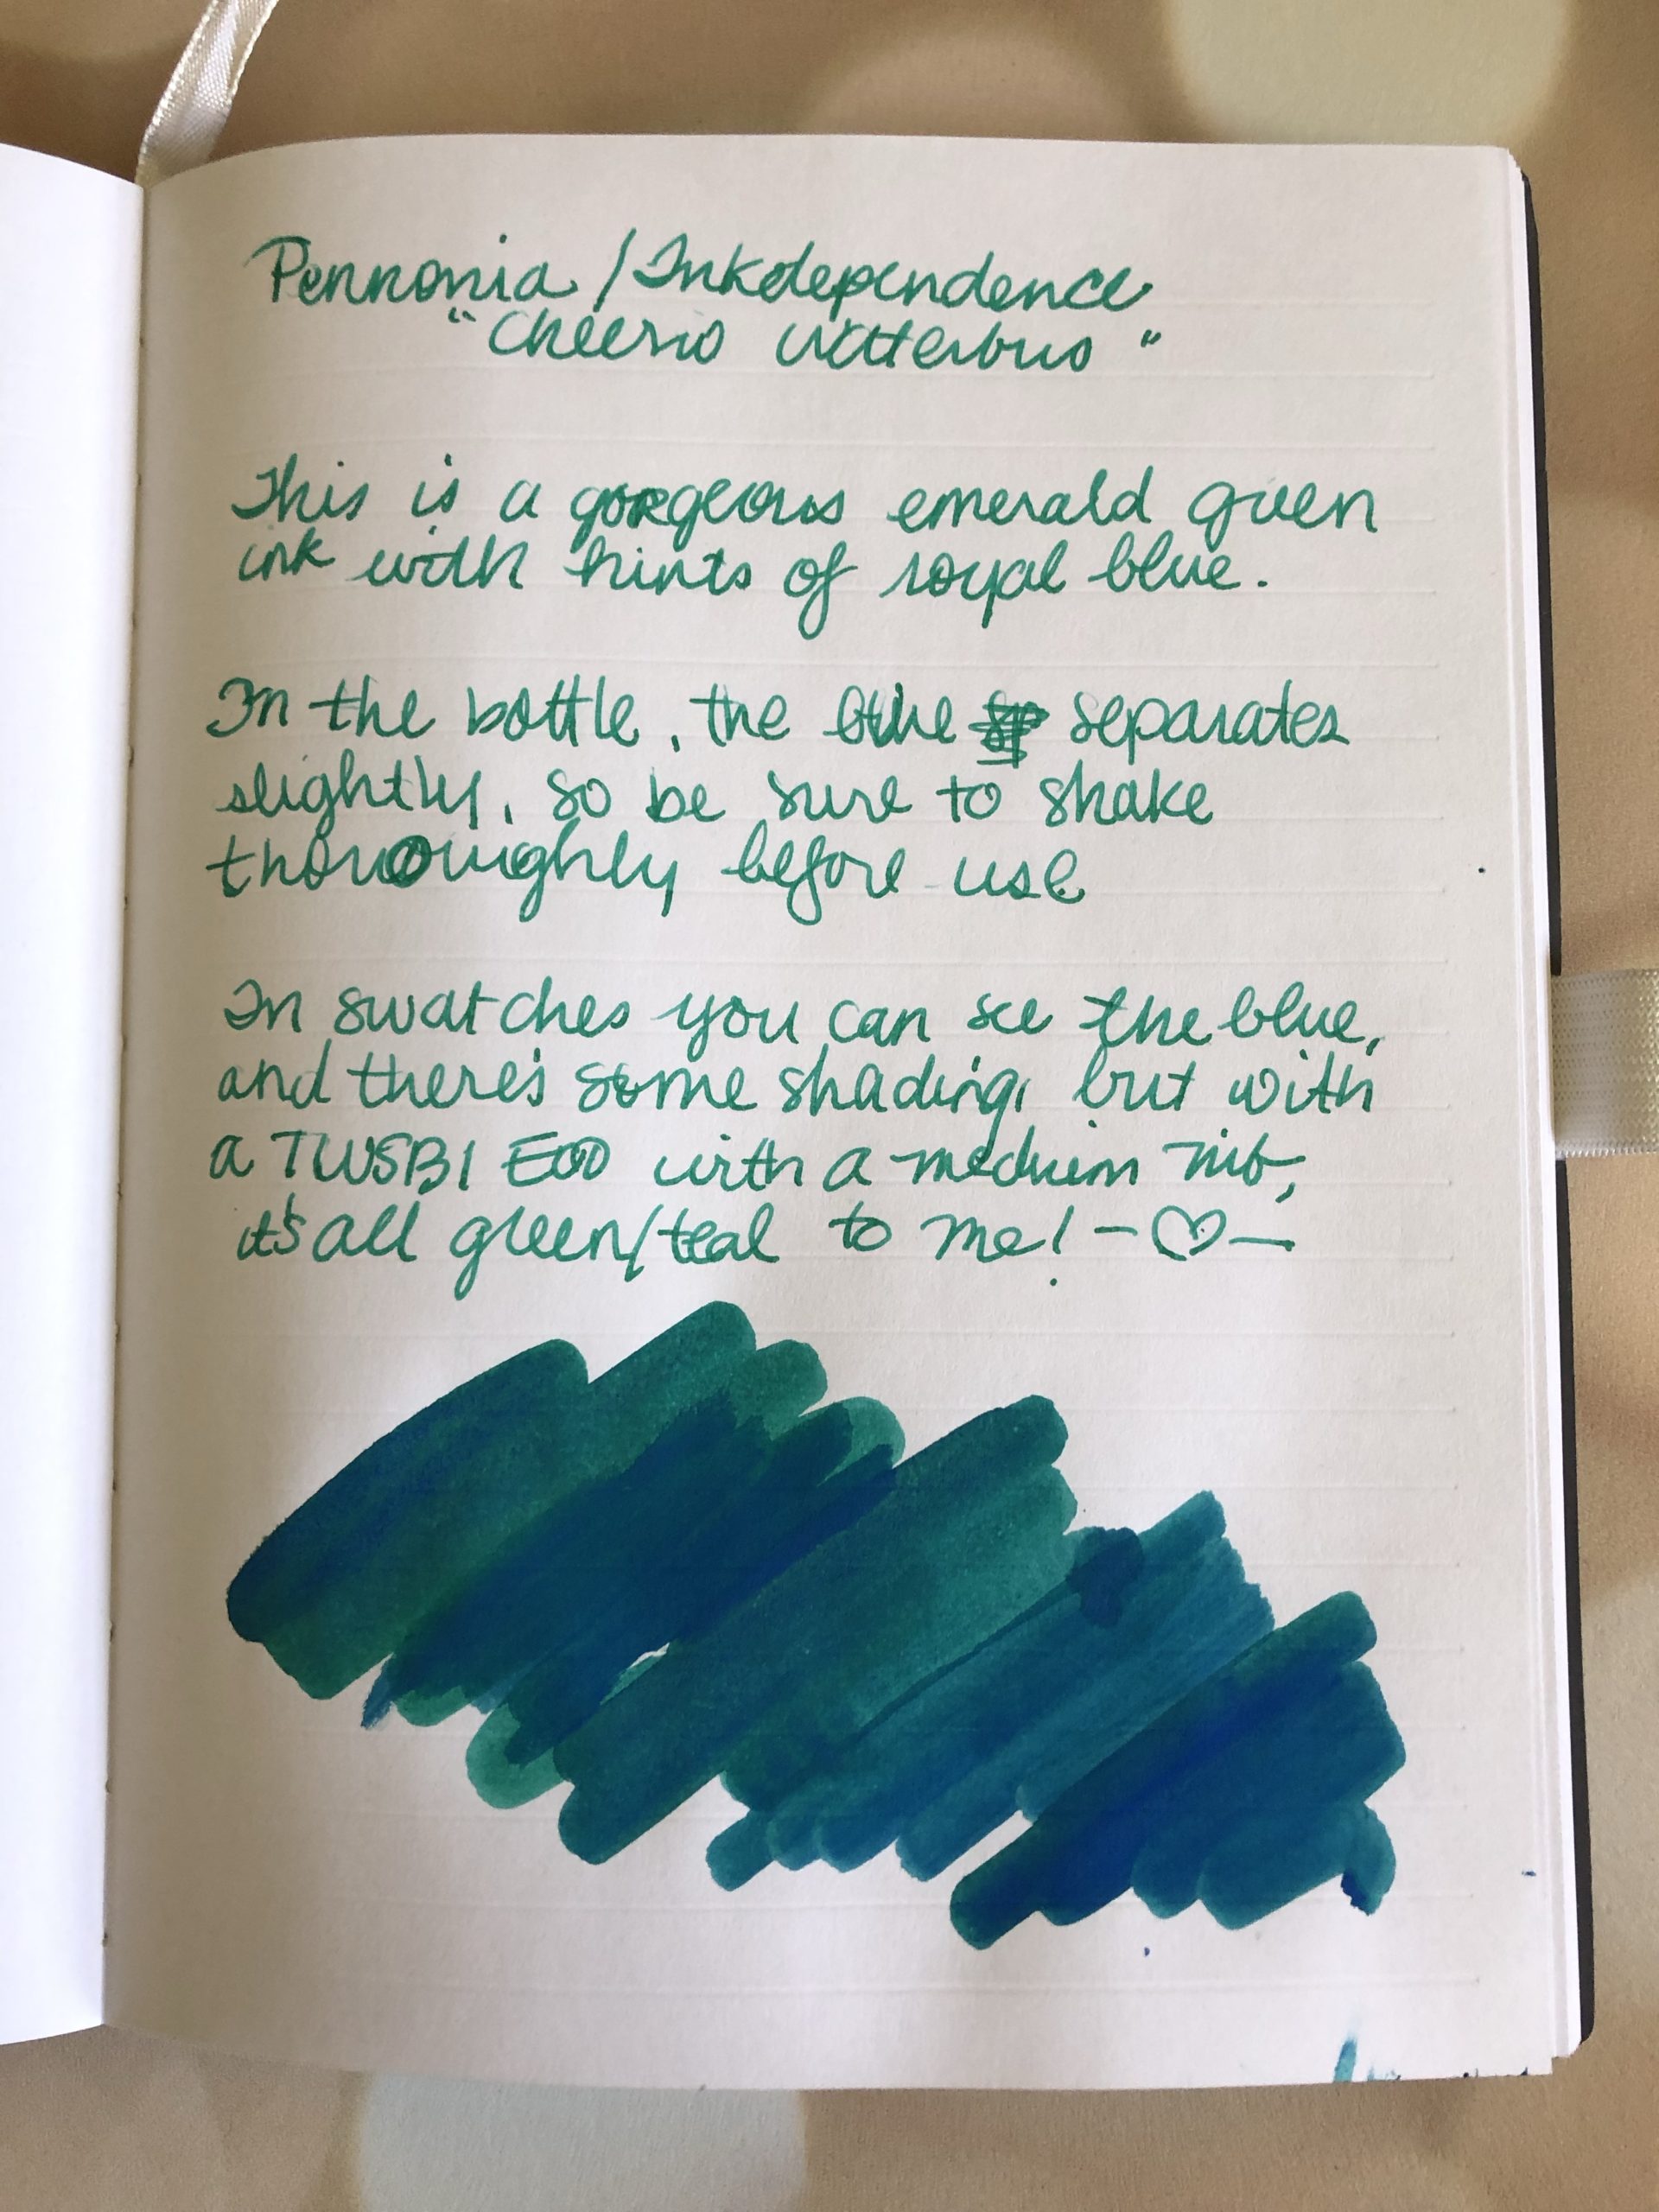 Pennonia / Inkdependence
"Cheerio Waterbus"
This is a gorgeous emerald green
ink with hints of royal blue.
In the bottle, the blue separates
slightly, so be sure to shake
thoroughly before use
In swatches you can see the blue,
and there's some shading, but with
a TWSBI ECO with a medium nib,
it's all green/teal to me! -♡-